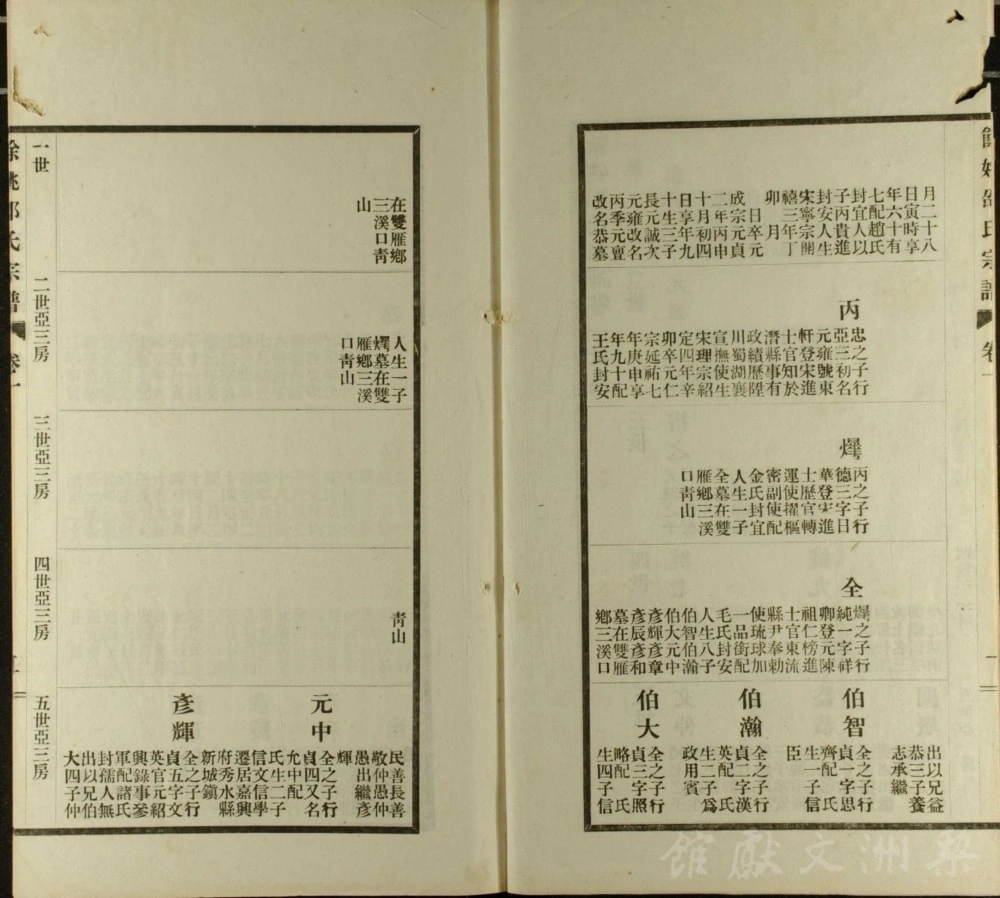 餘姚邵氏宗譜
卷一
月二十八
日寅時享
年六十有
七配趙氏
封宜人以
子丙貴進
封安人生
宋寧宗開
禧三年丁
卯 月
日卒元
成宗元貞
二年丙申
十月初四
日享年九
十生三子
長元誠次
元雍改名
丙季元亶
改名恭墓
丙
忠之子行
亞三初名
元雍號東
軒登宋進
士官知於
潛縣事有
政績歷陞
川蜀湖襄
宣撫使生
宋理宗紹
定四年辛
卯卒元仁
宗延祐七
年庚申享
年九十配
王氏封安
燡
丙之子行
德三字日
華登宋進
士歷官轉
運使擢樞
密副使配
金氏封宜
人生一子
全墓在雙
雁鄉三溪
口靑山
全
燡之子行
純一字祥
卿登元陳
祖仁榜進
士官東流
縣尹奉勅
使琉球加
一品銜配
毛氏封安
人生八子
伯智伯瀚
伯大元中
彥輝彥章
彥辰彥和
墓在雙雁
鄉三溪口
出以兄益
恭三子養
志承繼
伯智
全之子行
貞一字思
齊配 氏
生一子信
臣
伯瀚
全之子行
貞二字漢
英配 氏
生二子爲
政用賓
伯大
全之子行
貞三字照
略配 氏
生四子信
在雙雁鄉
三溪口靑
山
人生一子
燡墓在雙
雁鄉三溪
口靑山
靑山
民善長善
敬仲愚仲
愚出繼彥
輝
元中
全之子行
貞四又名
允中配
氏生二子
信文信學
遷居嘉興
府秀水縣
新城鎮
彥輝
全之子行
貞五字文
英官元紹
興錄事參
軍配諸氏
封孺人無
出以兄伯
大四子仲
一世
二世亞三房
三世亞三房
四世亞三房
五世亞三房
餘姚邵氏宗譜
卷一
梨洲文獻館